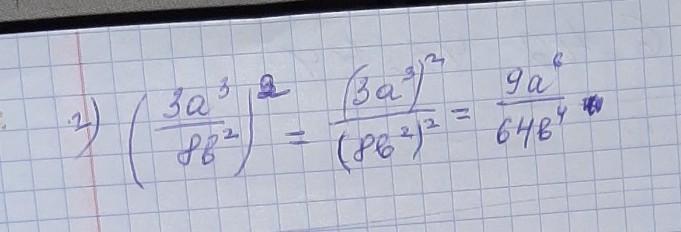 2) (3a³/8b²)² = (3a³)²/(8b²)² = 9a⁶/64b⁴